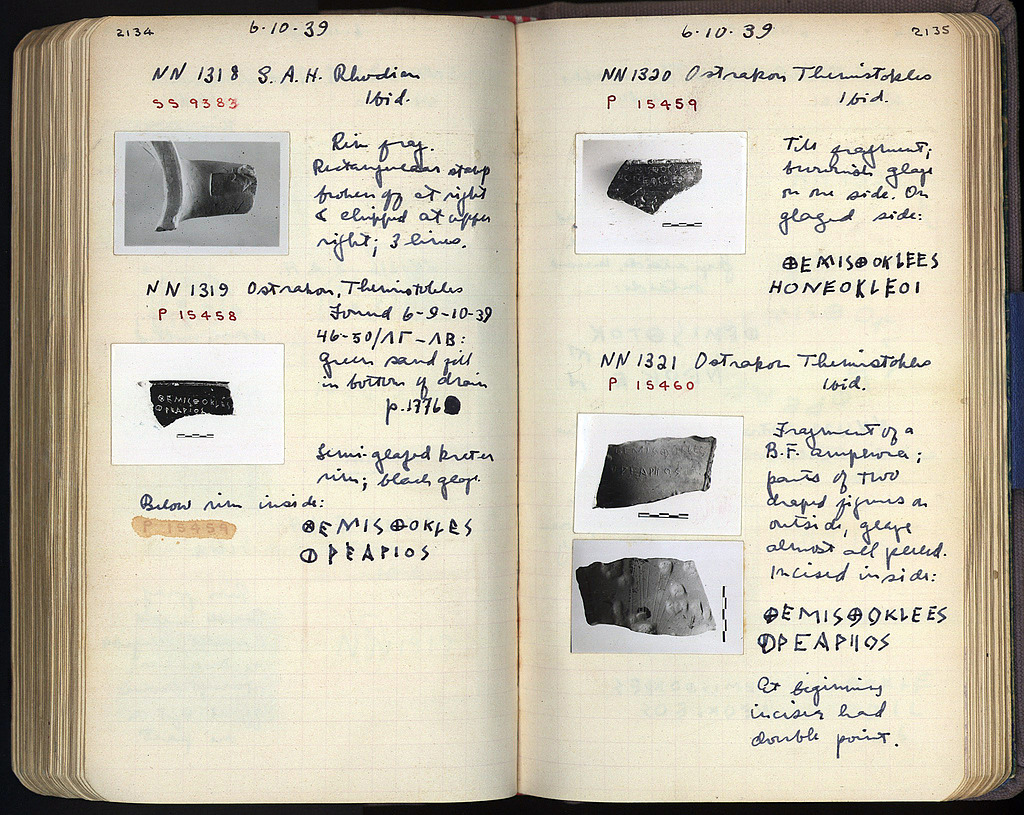 2134
6·10·39
NN 1318 S.A.H. Rhodian
SS 9383
Ibid.
Rim frag.
Rectangular stamp
broken off at right
& chipped at upper
right; 3 lines.
NN 1319 Ostrakon, Themistokles
P 15458
Found 6-9-10-39
46-50/ΛΓ-ΛΒ:
green sand fill
in bottom of drain
p. 1776
Semi-glazed krater
rim; black glaze.
Below rim inside:
P 15459
ⴲEMISⴲOKLES
ⵀPEAPIOS
2135
6·10·39
NN 1320 Ostrakon Themistokles
P 15459
Ibid.
Tile fragment;
brownish glaze
on one side. On
glazed side:
ⴲEMISⴲOKLEES
HONEOKLEOI
NN 1321 Ostrakon Themistokles
P 15460
Ibid.
Fragment of a
B.F. amphora;
parts of two
draped figures on
outside, glaze
almost all peeled.
Incised inside:
ⴲEMISⴲOKLEES
ⵀPEAPIIOS
At beginning
incisor had
double point.